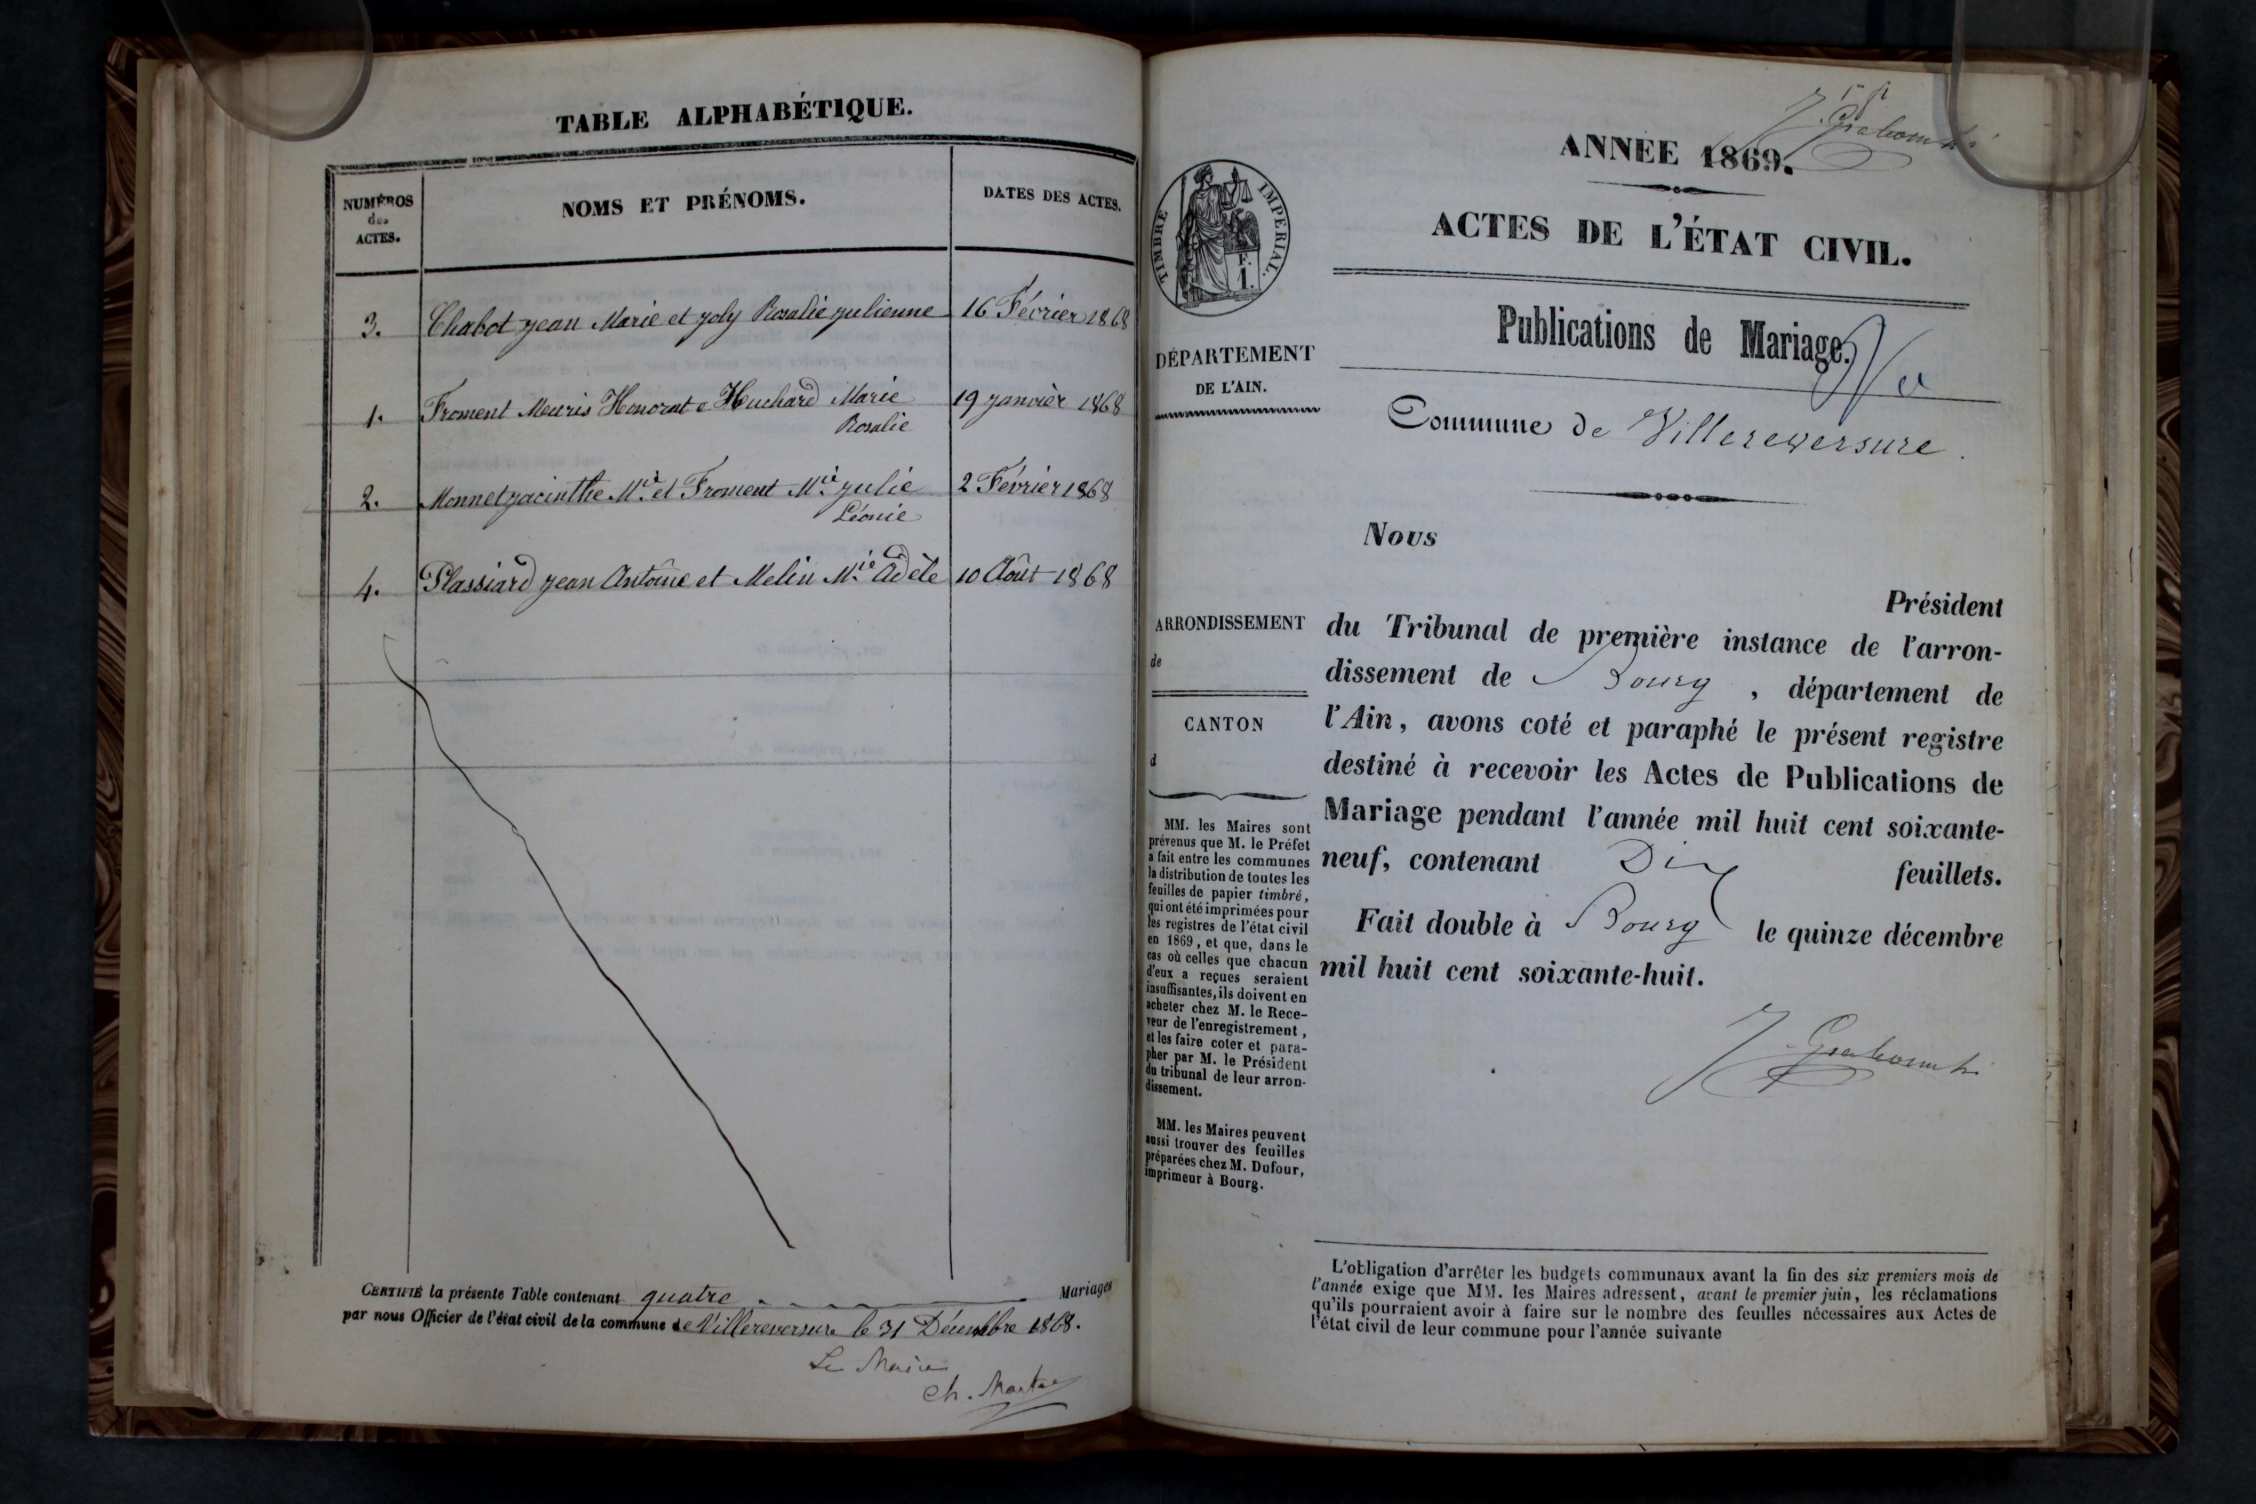 TABLE ALPHABÉTIQUE.
NUMÉROS
des
ACTES.
NOMS ET PRÉNOMS.
DATES DES ACTES.
3. Chabot jean Marie et joly Rosalie julienne 16 Février 1868
1. Froment Meuris Honorat e Huchard Marie 19 janvièr 1868
Rosalie
2. Monnet jacinthe Mie et Froment Mie julie 2 Février 1868
Léonie
4. Plassiard jean Antoine et Melin Mie Adèle 10 Août 1868
CERTIFIÉ la présente Table contenant quatre Mariages
par nous Officier de l'état civil de la commune de Villereversure le 31 Décembre 1868.
Le Maire
Ch.
ANNÉE 1869.
ACTES DE L'ÉTAT CIVIL.
TIMBRE IMPÉRIAL.
F.
1.
Publications de Mariage.
DÉPARTEMENT
DE L'AIN.
Commune de Villereversure.
Nous
Président
ARRONDISSEMENT
de
CANTON
d
du Tribunal de première instance de l'arron-
dissement de Bourg, département de
l'Ain, avons coté et paraphé le présent registre
destiné à recevoir les Actes de Publications de
Mariage pendant l'année mil huit cent soixante-
neuf, contenant Dix feuillets.
Fait double à Bourg le quinze décembre
mil huit cent soixante-huit.
MM. les Maires sont
prévenus que M. le Préfet
a fait entre les communes
la distribution de toutes les
feuilles de papier timbré,
qui ont été imprimées pour
les registres de l'état civil
en 1869, et que, dans le
cas où celles que chacun
d'eux a reçues seraient
insuffisantes, ils doivent en
acheter chez M. le Rece-
veur de l'enregistrement,
et les faire coter et para-
pher par M. le Président
du tribunal de leur arron-
dissement.
MM. les Maires peuvent
aussi trouver des feuilles
préparées chez M. Dufour,
imprimeur à Bourg.
L'obligation d'arrêter les budgets communaux avant la fin des six premiers mois de
l'année exige que MM. les Maires adressent, avant le premier juin, les réclamations
qu'ils pourraient avoir à faire sur le nombre des feuilles nécessaires aux Actes de
l'état civil de leur commune pour l'année suivante